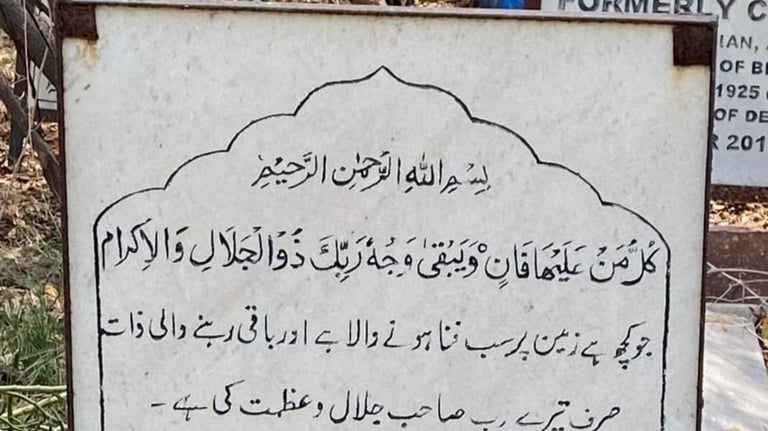 FORMERLY C
IAN, A
OF BI
1925
OF DE
R 201
بِسْمِ اللهِ الرَّحْمٰنِ الرَّحِيْمِ
كُلُّ مَنْ عَلَيْهَا فَانٍ وَّيَبْقىٰ وَجْهُ رَبِّكَ ذُوالْجَلَالِ وَالْاِكْرَام
جو کچھ ہے زمین پر سب فنا ہونے والا ہے اور باقی رہنے والی ذات
صرف تیرے رب صاحب جلال و عظمت کی ہے۔